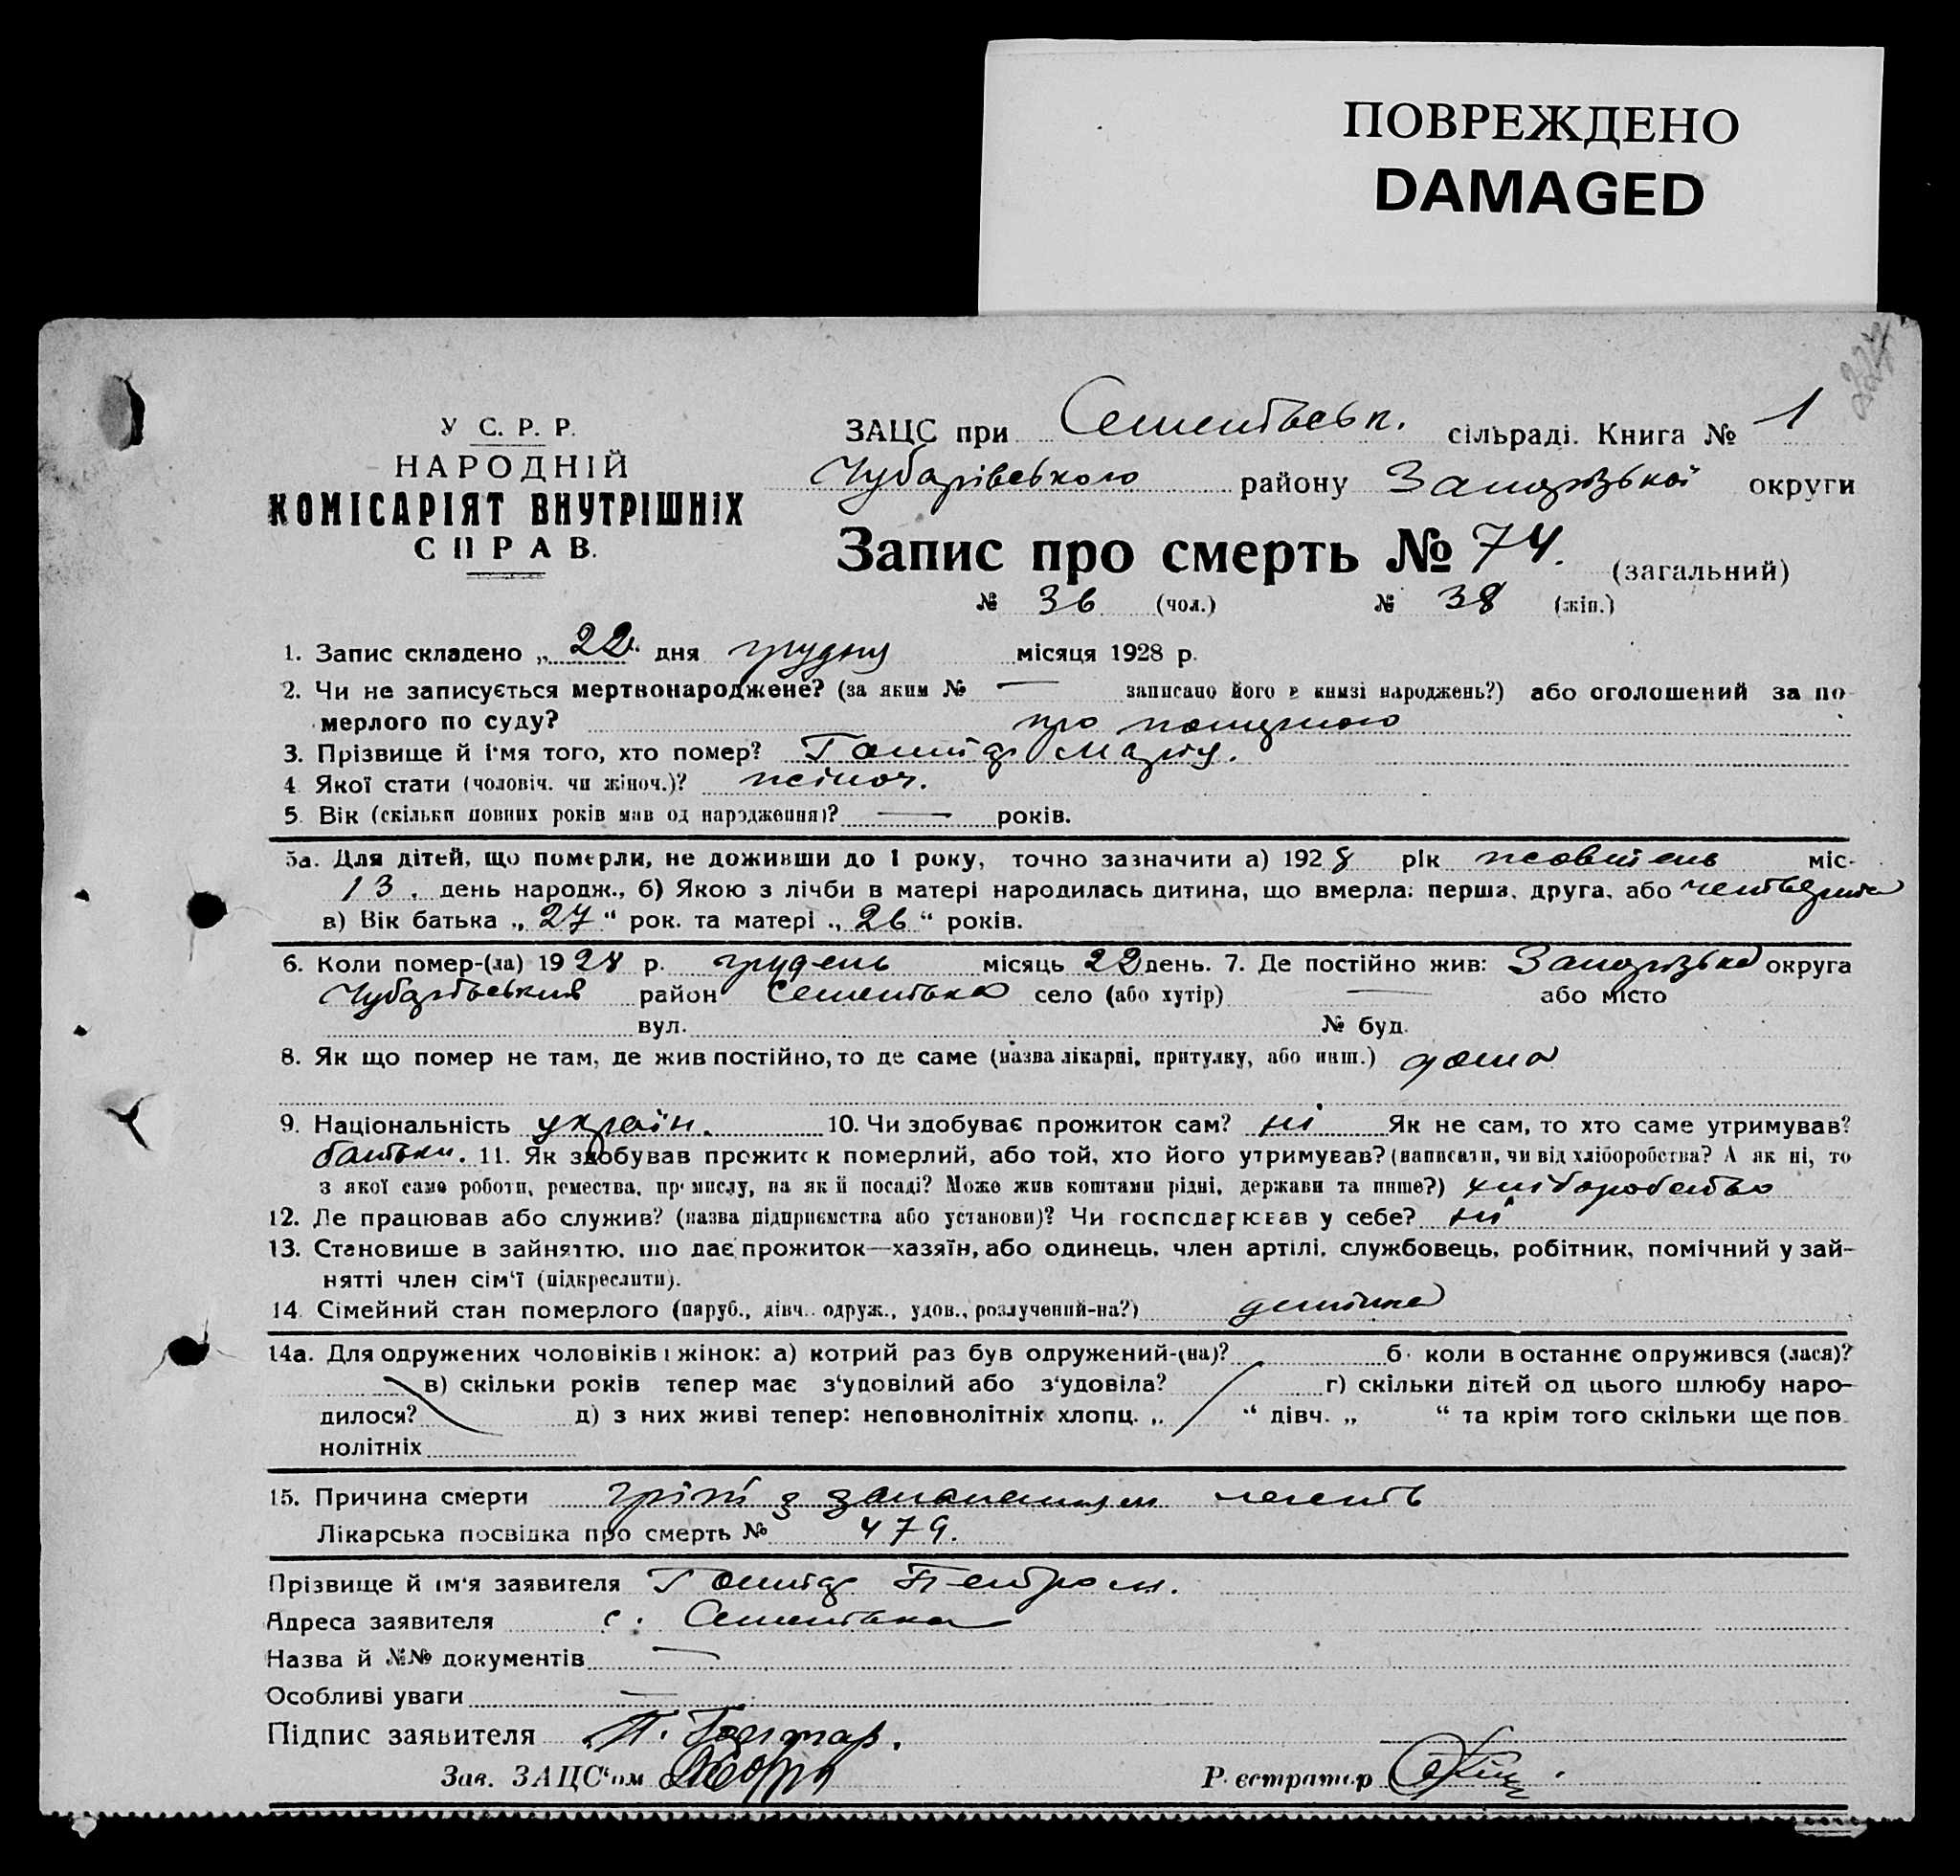 ПОВРЕЖДЕНО
DAMAGED
У С. Р. Р.
НАРОДНІЙ
КОМІСАРІЯТ ВНУТРІШНІХ
СПРАВ.
ЗАЦС при Сементівськ. сільраді. Книга № 1
Чубарівського району Запорізької округи
Запис про смерть № 74. (загальний)
№ 36 (чол.) № 38 (жін.)
1. Запис складено „ 22. дня грудня місяця 1928 р.
2. Чи не записується мертвонароджене? (за яким № — записано його в книзі народжень?) або оголошений за по-
мерлого по суду? про
3. Прізвище й ім'я того, хто помер? Марія.
4 Якої стати (чоловіч. чи жіноч.)? жіноч.
5. Вік (скільки повних років мав од народження)? — років.
5а. Для дітей, що померли, не доживши до 1 року, точно зазначити а) 1928 рік жовтень міс-
13. день народж., б) Якою з лічби в матері народилась дитина, що вмерла: перша, друга, або четверта
в) Вік батька „ 27 “ рок. та матері „ 26 “ років.
6. Коли помер-(ла) 1928 р. грудень місяць 22 день. 7. Де постійно жив: Запорізька округа
Чубарівський район Сементівка село (або хутір) — або місто
вул. № буд.
8. Як що помер не там, де жив постійно, то де саме (назва лікарні, притулку, або инш.) дома
9. Національність україн. 10. Чи здобуває прожиток сам? ні Як не сам, то хто саме утримував?
батьки. 11. Як здобував прожиток померлий, або той, хто його утримував? (написати, чи від хліборобства? А як ні, то
з якої саме роботи, ремества, промислу, на якій посаді? Може жив коштами рідні, держави та инше?) хліборобство
12. Де працював або служив? (назва підприємства або установи)? Чи господарював у себе? ні
13. Становище в зайняттю, що дає прожиток—хазяїн, або одинець, член артілі, службовець, робітник, помічний у зай-
нятті член сім'ї (підкреслити).
14. Сімейний стан померлого (паруб., дівч. одруж., удов., розлучений-на?) дитина
14а. Для одружених чоловіків і жінок: а) котрий раз був одружений-(на)? б коли востаннє одружився (лася)?
в) скільки років тепер має з'удовілий або з'удовіла? г) скільки дітей од цього шлюбу наро-
дилося? д) з них живі тепер: неповнолітніх хлопц. „ “ дівч. „ “ та крім того скільки ще пов
нолітніх
15. Причина смерти гріп з запаленням легень
Лікарська посвідка про смерть № 479.
Прізвище й ім'я заявителя Петром.
Адреса заявителя с. Сементівка
Назва й №№ документів —
Особливі уваги —
Підпис заявителя П.
Зав. ЗАЦС'ом
Реєстратор